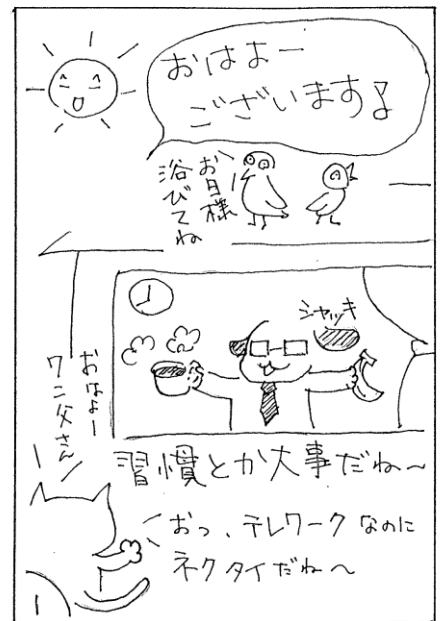 おはよー
ございます!
お日様
浴びてね
シャッキ
おはよー
ワニ父さん
習慣とか大事だね〜
おっ、テレワークなのに
ネクタイだね〜